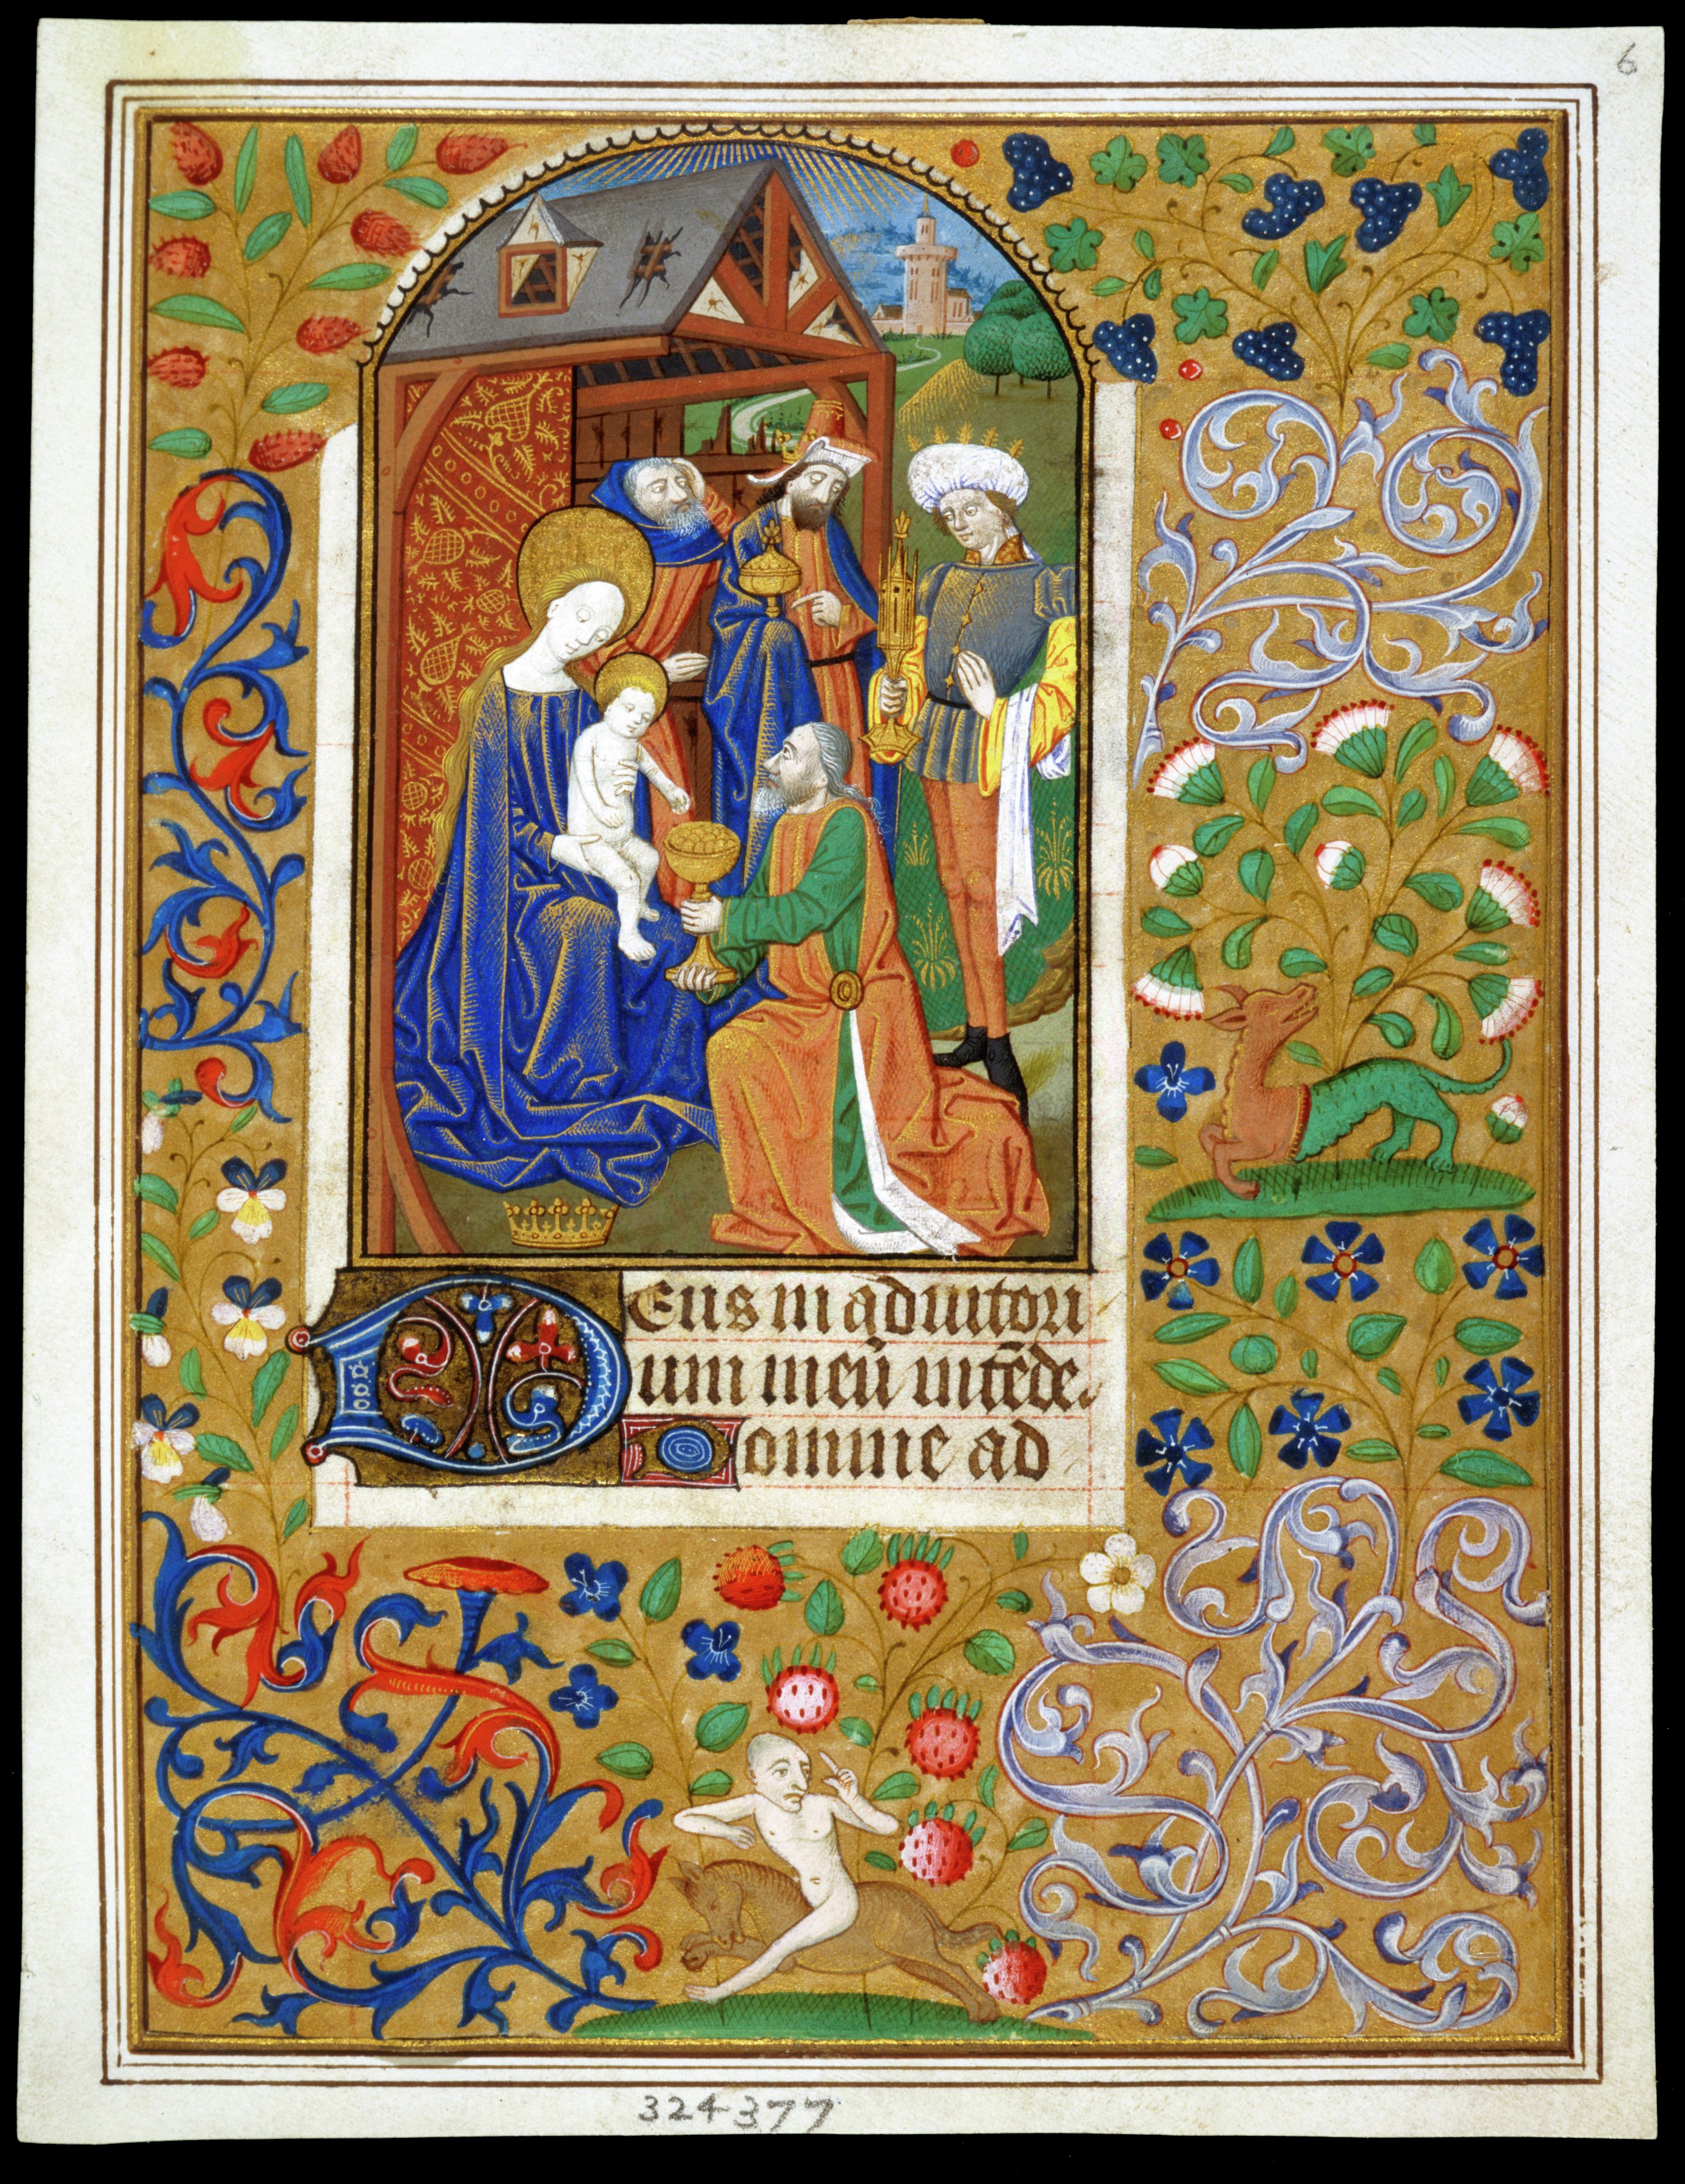 6
Deus in adiutori
um meū intēde.
Domine ad
324377